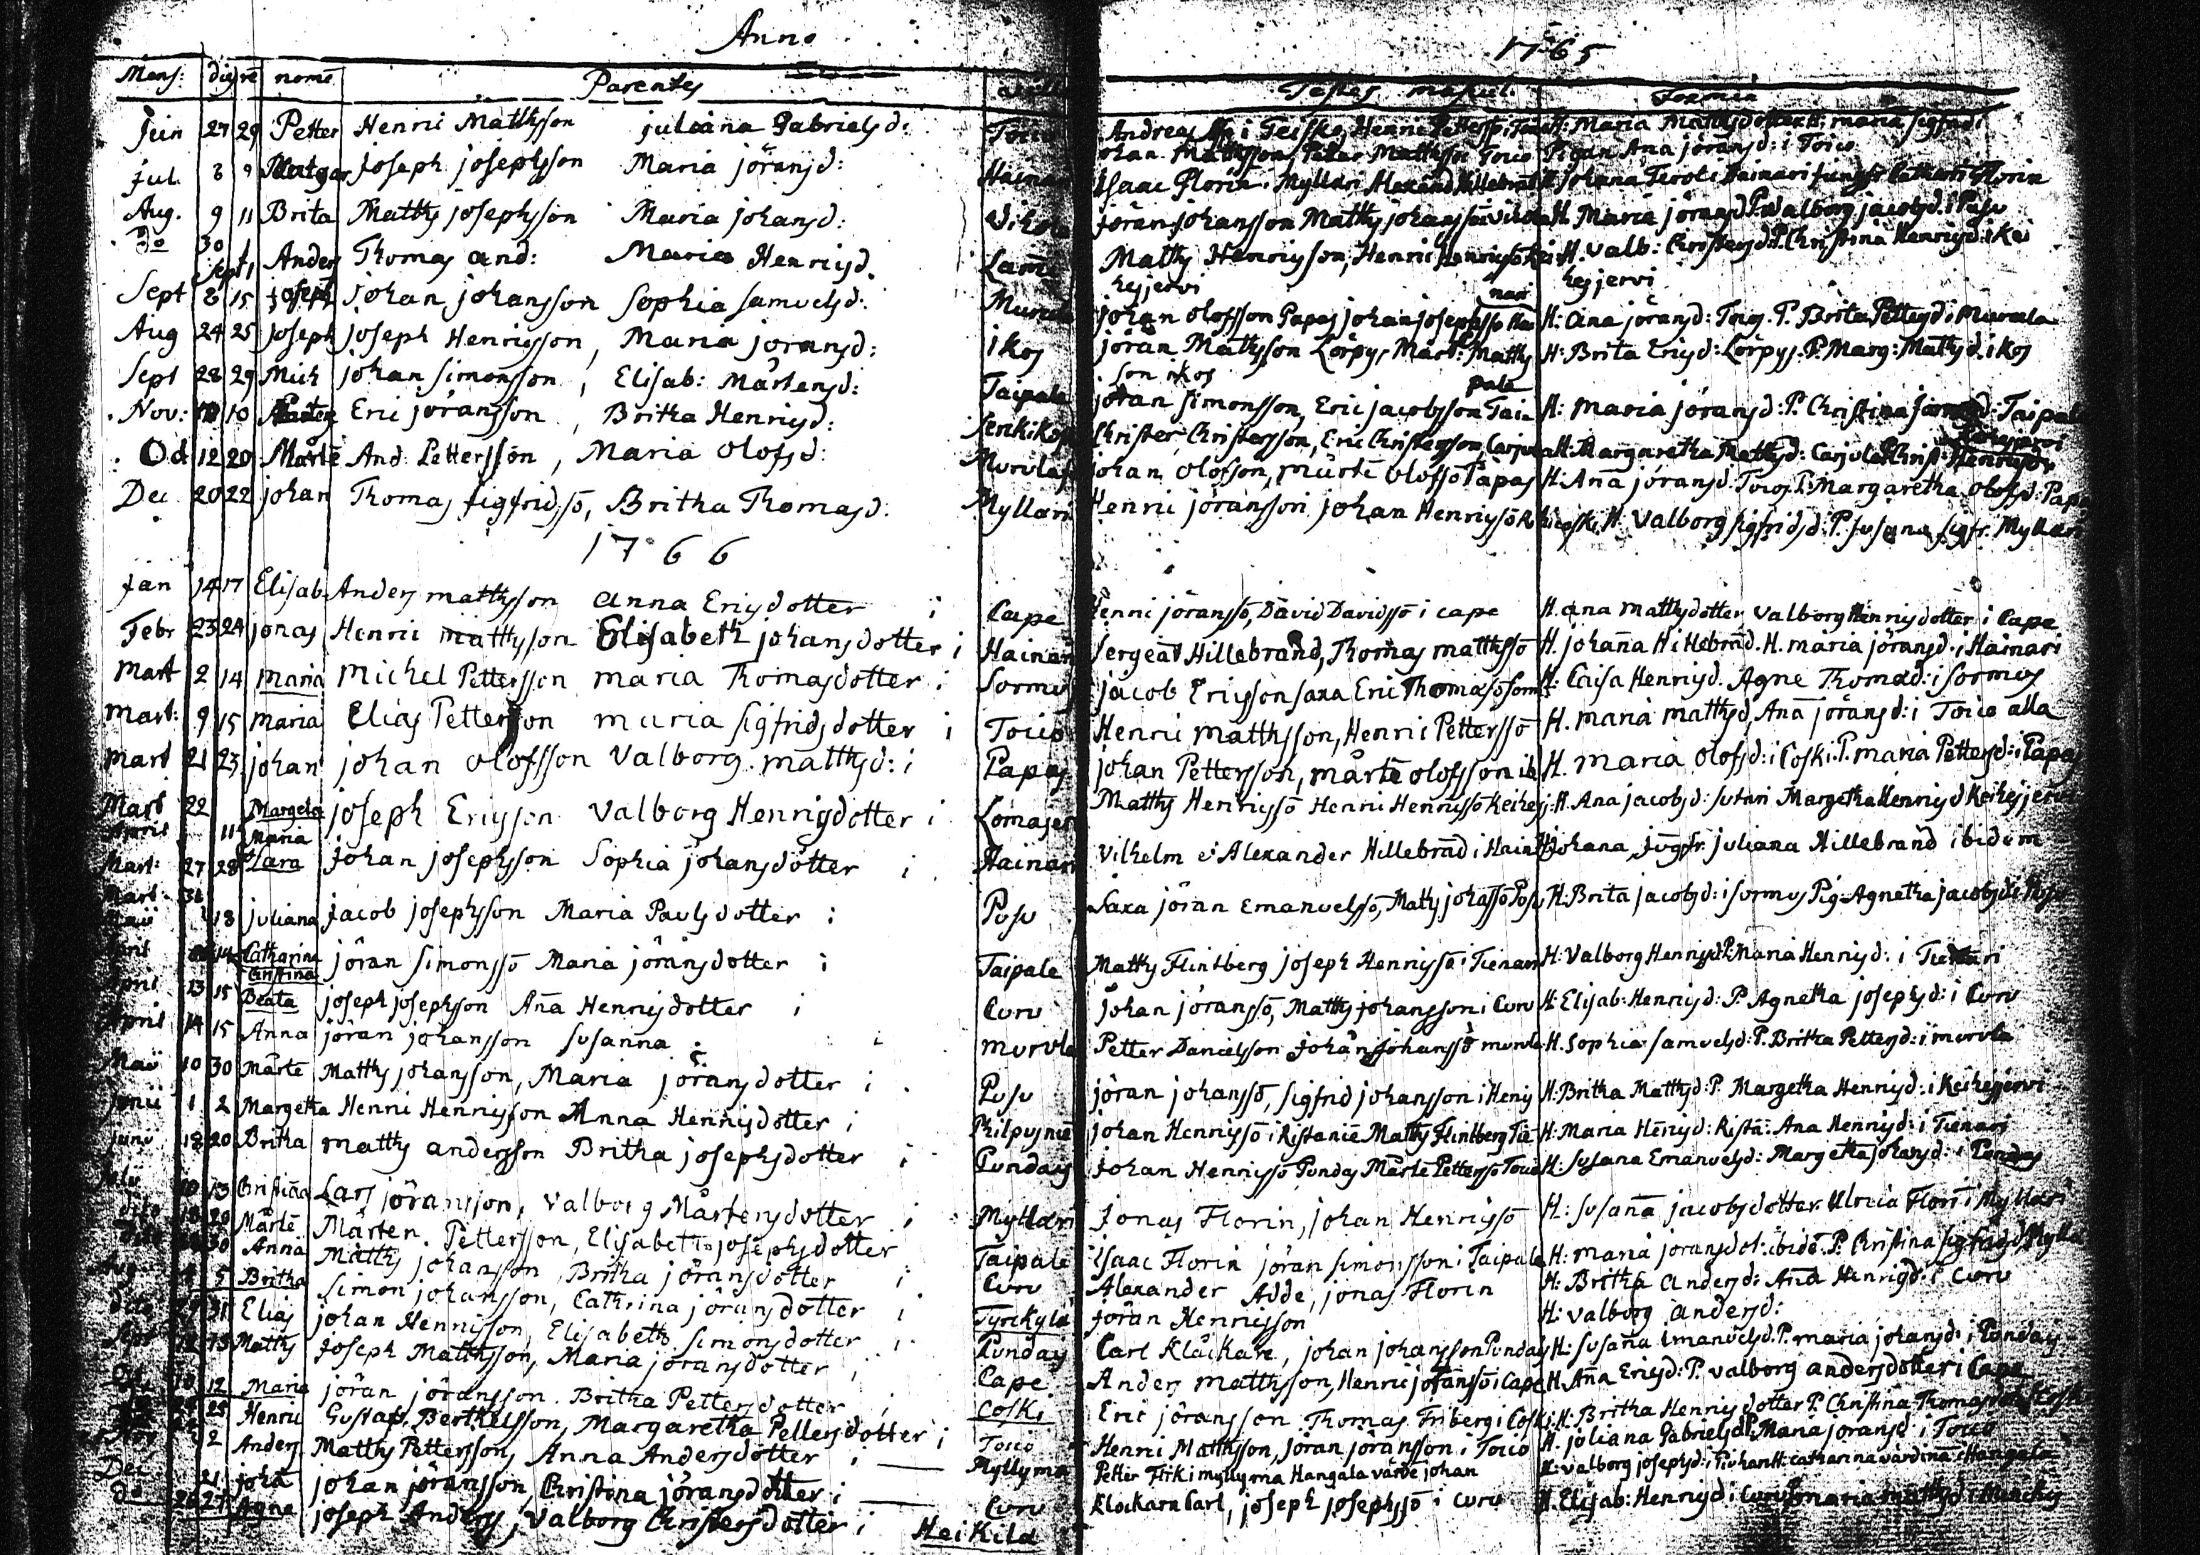 Anno 1765
Mens: die re nome Parentes Testes maskul. Foemin
Jun 27 29 Petter Henric Mattsson juliana Gabrielsd: Toico Andreas i Teisko, Henric Petterss i H: Maria Mattsdotter H: maria sigfrds
johan Mattsson, Petter Mattsso Toico Pigan Ana jöransd: i Toico
Jul. 8 9 Joseph josephsson Maria jöransd: Hainari Isaac Florin. Myllari Alexand Hillebrad H johana Hainari jungfr Catharin Florin
Aug. 9 11 Brita Matths josephsson Maria johansd: Vikola jöran johansson Matths johansso Vikola H. Maria jöransd P. Walborg jacobsd. i Pusu
Do 30 Sept 1 Anders Thomas and: Maria Henricsd. Matths Henricsson, Henric Henricsso Kei H. Valb: Christersd. P. Christina Henricsd. i Kei
hesjervi hesjervi
Sept 8 15 Joseph johan johansson Sophia Samuelsd: Murula johan olofsson Papas johan josephsso Hai H: Ana jöransd: Toico. P. Brita Pettersd i Murula
nari
Aug 24 25 joseph joseph Henricsson, Maria joransd: ikos jöran Mattsson Lörpys, Märt: Matths H: Brita Ericsd: Lörpys. P. Marg: Mattsd. ikos
son ikos
Sept 28 29 Mich johan Simonsson, Elisab: Mårtensd: Taipale johan Simonsson, Eric jacobsson Tai H: Maria jöransd: P. Christina Taipal
pale
Nov: 10 Eric jöransson, Britha Henricsd: Christer Christersson, Eric Christersson H: Margaretha Mattsd: Carjula Christ: Henricsd
Oct 12 20 Märte And. Pettersson, Maria olofsd: johan olofson, märte olofsso Papas H: Ana jöransd. Toico. P. Margaretha Olofsd: Papas
Dec 20 22 johan Thomas sigfridsso, Britha Thomasd. Myllari Henric jöransson johan Henricsso H: Valborg sigfridsd: P. susana sigfr. Myllari
1766
Jan 14 17 Elisab Anders mattsson anna Ericsdotter i Cape Henric jöransso, David Davidsso i cape H. ana mattsdotter, valborg Henricsdotter i Cape
Febr 23 24 jonas Henric mattsson Elisabeth johansdotter i Hainari Sergeat Hillebrand, Thomas mattsso H. johana Hillebrad. H. maria jöransd. i Hainari
Mart 2 14 maria Michel Pettersson maria Thomasdotter i Sormus jacob Ericsson saxa Eric Thomasso som H: Caisa Henricsd. Agne Thomasd: i sormus
Mart: 9 15 maria Elias Pettersson maria sigfridsdotter i Toico Henric mattsson, Henric Pettersso H. maria mattsd, Ana jöransd: i Toico alla
Mart 21 23 johan johan olofsson Valborg. mattsd: i Papas johan Pettersson, mårte olofsson ib H. maria olofsd: i Coski. P. maria Pettersd: i Papas
Mart 22 Margeta joseph Ericsson Valborg Henricsdotter i Matths Henricsso Henric Henricsso Keihesj: H. Ana jacobsd: sutari Margetha Henricsd Keihesjervi
April 11 maria
Mart: 27 28 Clara Johan josephsson Sophia johansdotter i Hainari Vilhelm e: Alexander Hillebrad i Hain H: johana, jugfr. juliana Hillebrand ibidem
Mart. 31
Maii 18 juliana jacob josephsson Maria Paulsdotter i Pusu Saxa jöran Emanuelsso, Matts johasso Pusu H: Brita jacobsd: i sormus Pig: Agnetha jacobsd i Pusu
April 14 Catharina jöran Simonsso Maria jöransdotter i Taipale Matths Flintberg joseph Henricsso i Tienari H: Valborg Henricsd P. Maria Henricsd: i Tienari
Christina
April 13 15 Beata joseph josephson Ana Henricsdotter i Curu johan jöransso, Matths johansson i Curu H: Elisab: Henricsd: P. Agnetha josephsd: i Curu
April 14 15 Anna jöran johansson susanna i murula Petter Danielsson johan johansso murula H. sophia samuelsd: P. Britha Pettersd: i murula
Maii 10 30 Mårte Matths johansson, Maria jöransdotter i Pusu jöran johansso, sigfrid johansson i Henis H: Britha Mattsd: P. Margetha Henricsd: i Keihesjervi
Junii 1 2 Margetha Henric Henricsson Anna Henricsdotter i Philpusnie johan Henricsso i Ristanie Matths Flintberg Tie H: Maria Henricsd: Rista: Ana Henricsd: i Tienari
Junii 18 20 Britha matths andersson Britha josephsdotter i Pundas johan Henricsso Pundas Mårte Pettersso Toico H: susana Emanuelsd: Margetha johansd: i Pundas
Julii 10 13 Christina Lars jöransson, Valborg Mårtensdotter i Myllari Jonas Florin, johan Henricsso H: susana jacobsdotter Ulrica Flori i Myllari
dito 18 20 Mårte Mårten. Pettersson, Elisabeth josephsdotter Taipale Isaac Florin jöran simonsson i Taipale H: maria joransdot: ibide. P. Christina sigfridsd Mylla
30 Anna Matths johansson, Britha jöransdotter i Curu Alexander Adde, jonas Florin H: Britha andersd: Ana Henricsd: i curu
Aug 5 Britha Simon johansson, Cathrina jöransdotter i Tyrikylä jöran Henricsson H: valborg andersd:
dito 29 31 Elias johan Henricsson, Elisabeth Simonsdotter i Pundas Carl Klåckare, johan johansson Pundas H: susana Emanuelsd. P. maria johansd. i Pundas
Sept 13 Matths joseph Mattsson, Maria joransdotter i Cape Anders mattsson, Henric joransso i Cape H. Ana Ericsd: P. valborg andersdotter i Cape
Oct 10 12 Maria jöran jöransson. Britha Pettersdotter i Coski Eric jöransson Thomas Friberg i Coski H: Britha Henricsdotter P. Christina Thomasdot Coski
25 Henric Gustaf Berthelsson, Margaretha Pettersdotter i Toico Henric Mattsson, jöran jöransson i Toico H. juliana Gabrielsd P. Maria joransd i Toico
Nov 2 Anders Matths Pettersson, Anna Andersdotter i Myllyma Petter Flink i myllyma Hangala värde johan H: valborg josephsd: i H: catharina värdina i Hangala
Dec 21 joha johan jöransson, Christina jöransdotter i Curu Klockare Carl, joseph josephsso i curu H. Elisab: Henricsd i Curu P. maria mattsd i
do 26 27 Agne joseph Anderss, Valborg Christersdotter i Heikilä